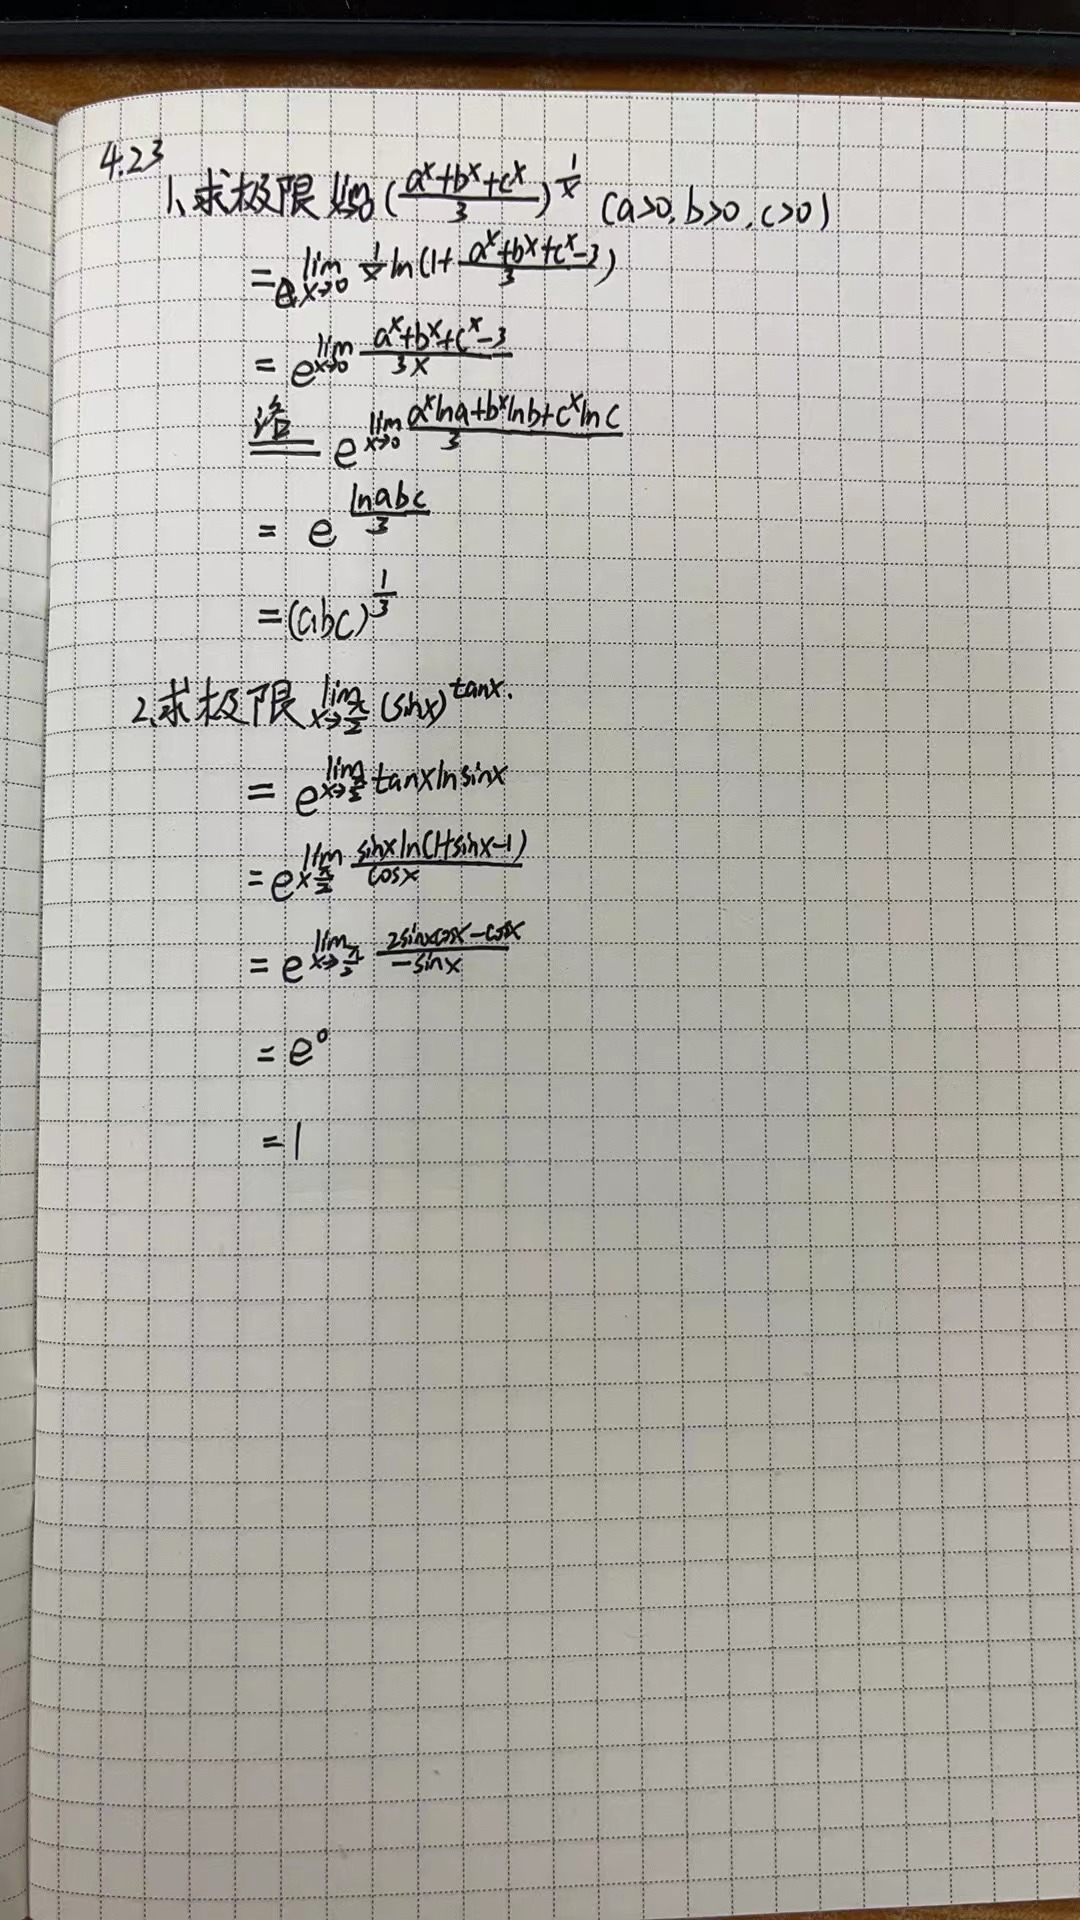 4.23
1、求极限 lim x→0 (a^x+b^x+c^x / 3)^(1/x) (a>0, b>0, c>0)
= e^(lim x→0 1/x ln(1+ (a^x+b^x+c^x-3)/3))
= e^(lim x→0 (a^x+b^x+c^x-3)/3x)
洛 e^(lim x→0 (a^x lna+b^x lnb+c^x lnc)/3)
= e^(lnabc/3)
=(abc)^(1/3)
2、求极限 lim x→π/2 (sinx)^tanx.
= e^(lim x→π/2 tanxlnsinx)
= e^(lim x π/2 sinxln(1+sinx-1)/cosx)
= e^(lim x→π/2 (2sinxcosx-cosx)/-sinx)
= e^0
= 1